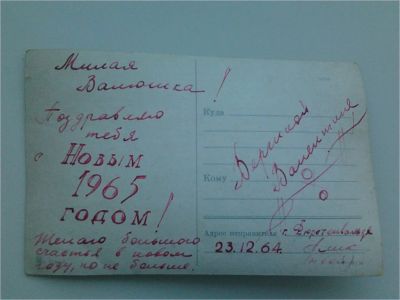 Милая
Валюшка!
Поздравляю
тебя
с Новым
1965
годом!
Желаю большого
счастья в новом
году, но не больше.
Куда
Кому
Валентине
Адрес отправителя
23.12.64.